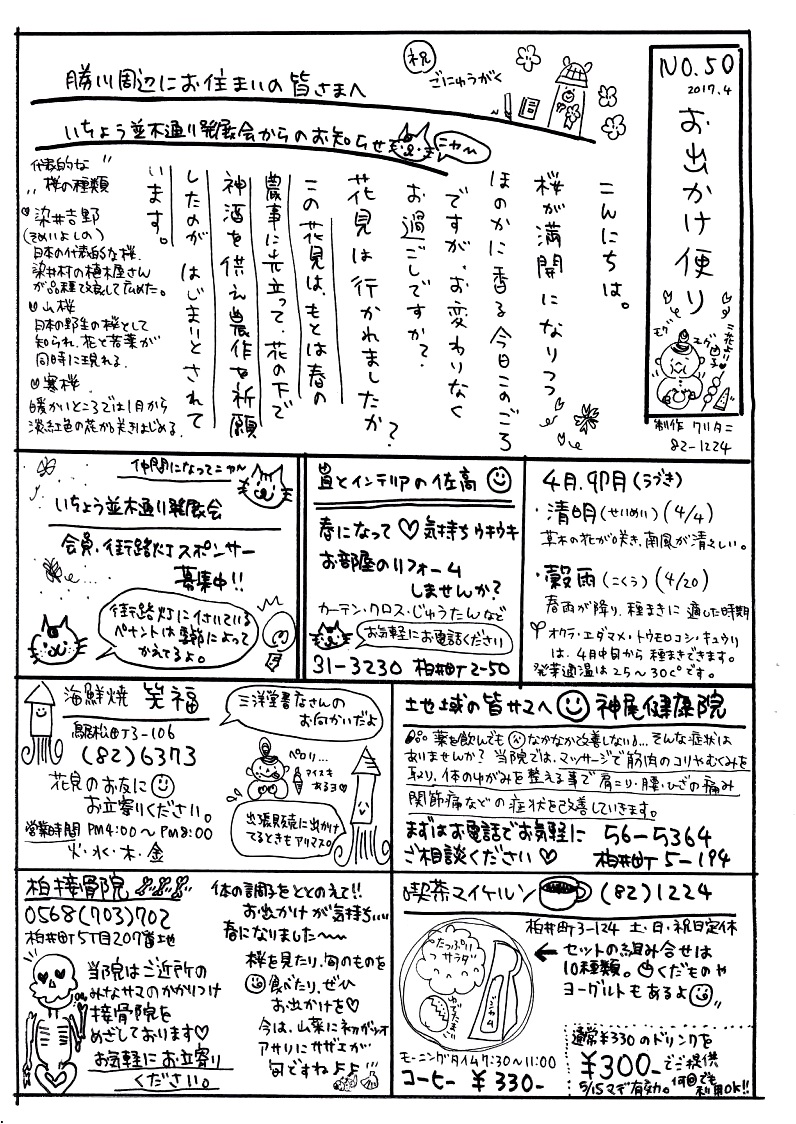 NO.50
2017.4
お出かけ便り
二花より
ダンゴ
モグ
モグ
制作 クリタニ
82-1224
祝
ごにゅうがく
勝川周辺にお住まいの皆さまへ
いちょう並木通り発展会からのお知らせ
ニャ〜
こんにちは。
桜が満開になりつつ
ほのかに香る今日このごろ
ですが、お変わりなく
お過ごしですか?
花見は行かれましたか?
この花見は、もとは春の
農事に先立って、花の下で
神酒を供え豊作を祈願
したのが はじまりとされて
います。
代表的な
桜の種類
染井吉野
(そめいよしの)
日本の代表的な桜。
染井村の植木屋さん
が品種改良して広めた。
山桜
日本の野生の桜として
知られ、花と若葉が
同時に現れる。
寒桜
暖かいところでは1月から
淡紅色の花が咲きはじめる。
仲間になってニャ〜
いちょう並木通り発展会
会員・街路灯スポンサー
募集中!!
街路灯に付いている
ペナントは季節によって
かえてるよ。
畳とインテリアの佐高
春になって♡気持ちウキウキ
お部屋のリフォーム
しませんか?
カーテン・クロス・じゅうたんなど
お気軽にお電話ください
31-3230 柏井町2-50
4月.卯月(うづき)
・清明(せいめい)(4/4)
草木の花が咲き、南風が清々しい。
・穀雨(こくう)(4/20)
春雨が降り、種まきに適した時期
オクラ・エダマメ・トウモロコシ・キュウリ
は、4月中旬から種まきできます。
発芽適温は25〜30℃です。
海鮮焼 笑福
鳥居松町3-106
(82)6373
花見のお友に
お立寄りください。
営業時間 PM4:00〜PM8:00
火・水・木・金
三洋堂書店さんの
お向かいだよ
ペロリ…
アイスも
あるヨ♡
出張販売に出かけ
てるときもアリマス。
地域の皆サマへ 神尾健康院
薬を飲んでも なかなか改善しない…そんな症状は
ありませんか? 当院では、マッサージで筋肉のコリやむくみを
取り、体のゆがみを整える事で肩こり・腰・ひざの痛み
関節痛などの症状を改善していきます。
まずはお電話でお気軽に 56-5364
ご相談ください♡ 柏井町5-194
柏接骨院
0568(703)702
柏井町5丁目207番地
当院はご近所の
みなサマのかかりつけ
接骨院を
めざしております♡
お気軽にお立寄り
ください。
体の調子をととのえて!!
お出かけが気持ちいい
春になりました〜
桜を見たり、旬のものを
食べたり、ぜひ
お出かけを♡
今は、山菜に初ガツオ
アサリにサザエが
旬ですねよ
喫茶マイケルン (82)1224
柏井町3-124 土・日・祝日定休
たっぷり
サラダ
ゆでたまご
← セットの組み合せは
10種類。くだものや
ヨーグルトもあるよ
モーニングタイム7:30〜11:00
コーヒー ¥330-
通常¥330のドリンクを
¥300-でご提供
5/15マデ有効。何回でも
利用OK!!